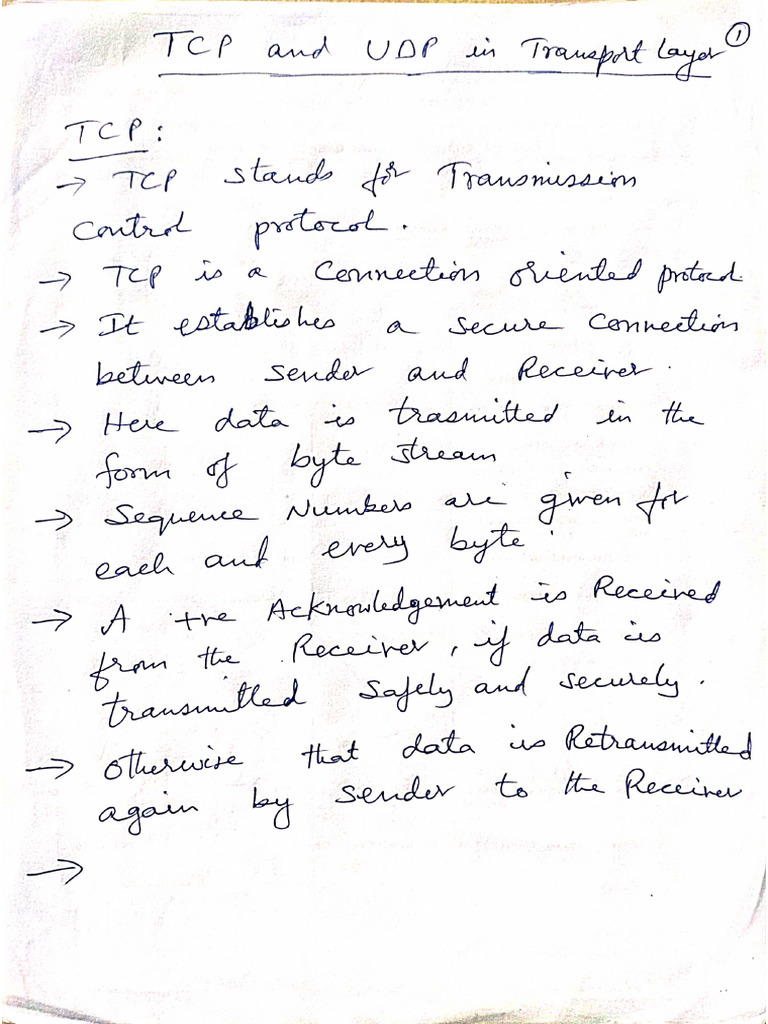 TCP and UDP in Transport Layer ①
TCP:
→ TCP stands for Transmission
Control protocol.
→ TCP is a Connection oriented protocol.
→ It establishes a secure Connection
between Sender and Receiver.
→ Here data is trasmitted in the
form of byte stream
→ Sequence Numbers are given for
each and every byte.
→ A +ve Acknowledgement is Received
from the Receiver, if data is
transmitted Safely and securely.
→ Otherwise that data is Retransmitted
again by Sender to the Receiver
→